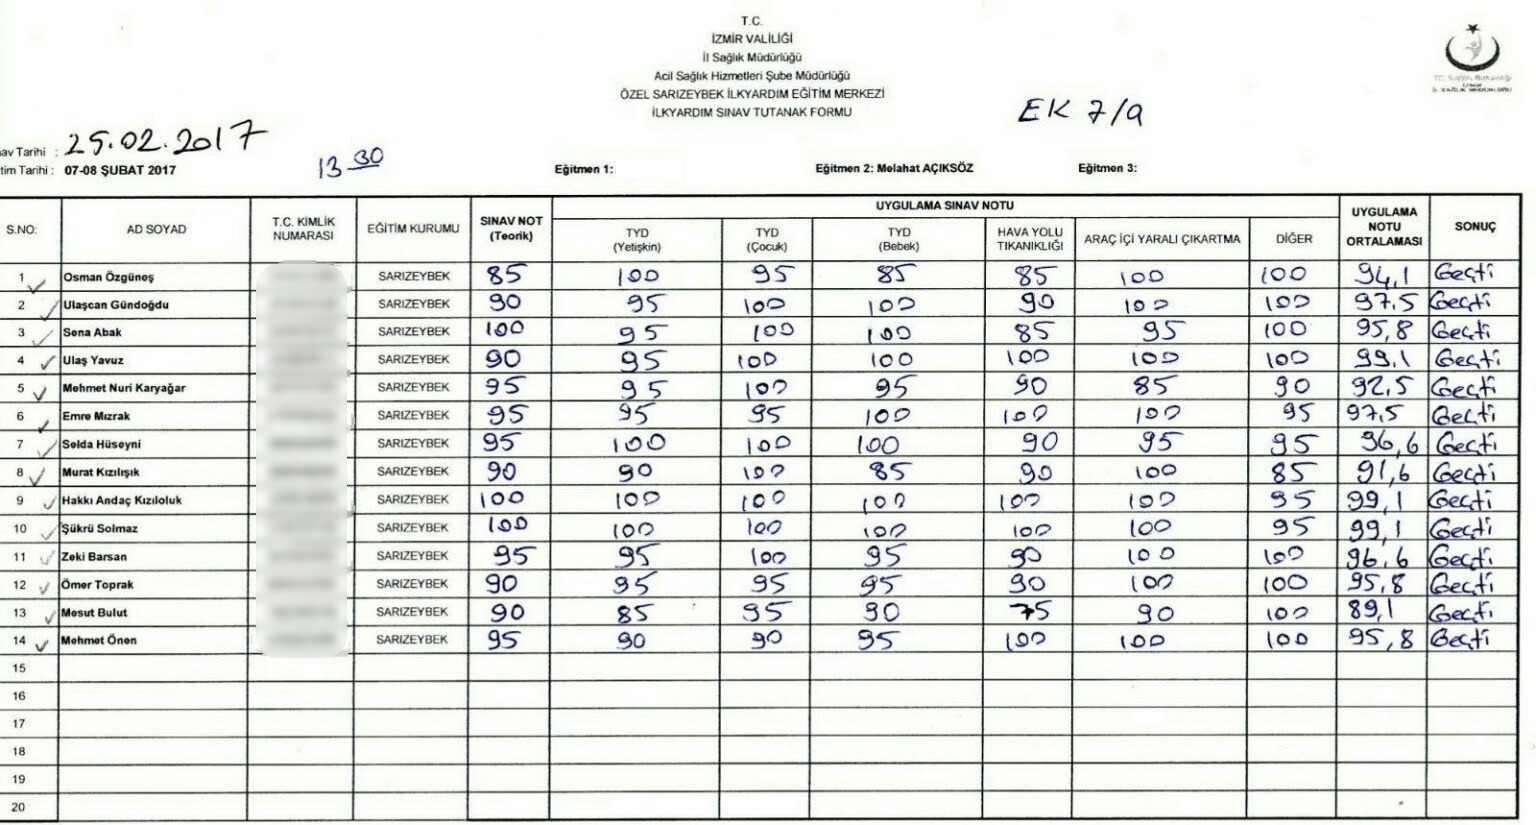 T.C.
İZMİR VALİLİĞİ
İl Sağlık Müdürlüğü
Acil Sağlık Hizmetleri Şube Müdürlüğü
ÖZEL SARIZEYBEK İLKYARDIM EĞİTİM MERKEZİ
İLKYARDIM SINAV TUTANAK FORMU
EK 7/a
nav Tarihi : 25.02.2017
tim Tarihi : 07-08 ŞUBAT 2017 13 30 Eğitmen 1: Eğitmen 2: Melahat AÇIKSÖZ Eğitmen 3:
S.NO: AD SOYAD T.C. KİMLİK NUMARASI EĞİTİM KURUMU SINAV NOT (Teorik) UYGULAMA SINAV NOTU UYGULAMA NOTU ORTALAMASI SONUÇ
TYD (Yetişkin) TYD (Çocuk) TYD (Bebek) HAVA YOLU TIKANIKLIĞI ARAÇ İÇİ YARALI ÇIKARTMA DİĞER
1 Osman Özgüneş SARIZEYBEK 85 100 95 85 85 100 100 94,1 Geçti
2 Ulaşcan Gündoğdu SARIZEYBEK 90 95 100 100 90 100 100 97,5 Geçti
3 Sena Abak SARIZEYBEK 100 95 100 100 85 95 100 95,8 Geçti
4 Ulaş Yavuz SARIZEYBEK 90 95 100 100 100 100 100 99,1 Geçti
5 Mehmet Nuri Karyağar SARIZEYBEK 95 95 100 95 90 85 90 92,5 Geçti
6 Emre Mızrak SARIZEYBEK 95 95 95 100 100 100 95 97,5 Geçti
7 Selda Hüseyni SARIZEYBEK 95 100 100 100 90 95 95 96,6 Geçti
8 Murat Kızılışık SARIZEYBEK 90 90 100 85 90 100 85 91,6 Geçti
9 Hakkı Andaç Kızıloluk SARIZEYBEK 100 100 100 100 100 100 95 99,1 Geçti
10 Şükrü Solmaz SARIZEYBEK 100 100 100 100 100 100 95 99,1 Geçti
11 Zeki Barsan SARIZEYBEK 95 95 100 95 90 100 100 96,6 Geçti
12 Ömer Toprak SARIZEYBEK 90 95 95 95 90 100 100 95,8 Geçti
13 Mesut Bulut SARIZEYBEK 90 85 95 90 75 90 100 89,1 Geçti
14 Mehmet Önen SARIZEYBEK 95 90 90 95 100 100 100 95,8 Geçti
15
16
17
18
19
20